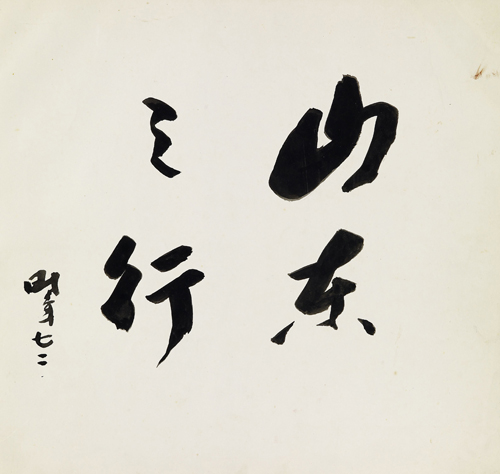 山东
之行
七二